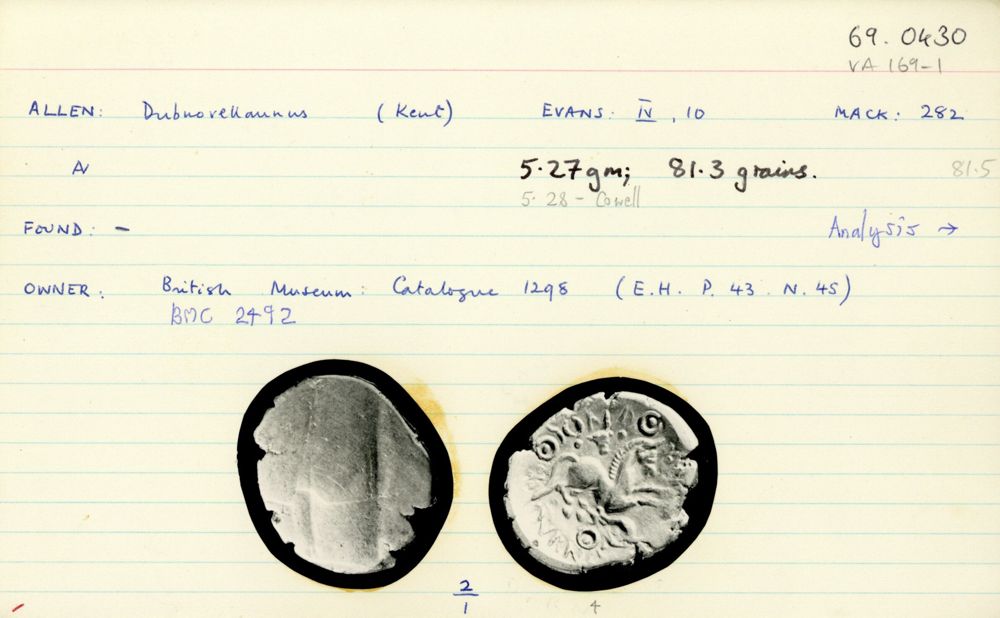 69. 0430
VA 169-1
ALLEN: Dubnovellaunus (Kent) EVANS: IV, 10 MACK: 282
AV
5.27gm; 81.3 grains. 81.5
5.28 - Cowell
FOUND: -
Analysis →
OWNER: British Museum: Catalogue 1298 (E.H. P. 43. N. 45)
BMC 2492
2
1 4